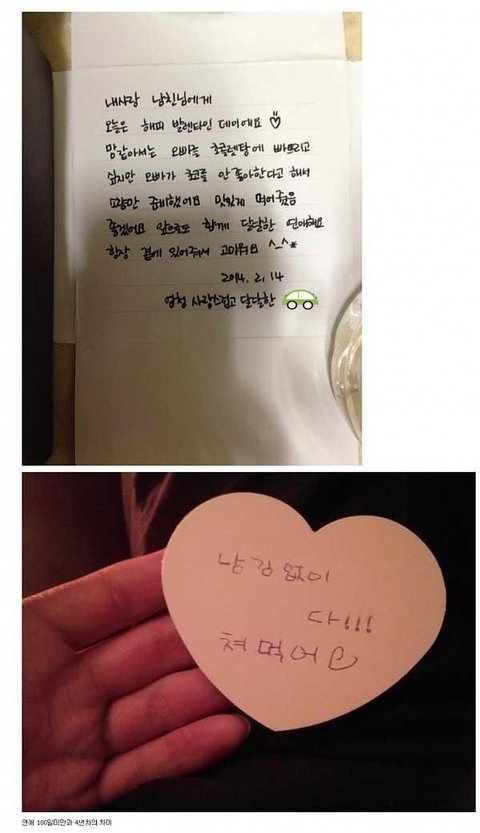 내사랑 남친님에게
오늘은 해피 발렌타인 데이에요
맘같아서는 오빠를 초콜렛탕에 빠뜨리고
싶지만 오빠가 초코를 안 좋아한다고 해서
요맘만 준비했어요 맛있게 먹어줬음
좋겠어요 앞으로도 함께 달달한 연애해요
항상 곁에 있어줘서 고마워요 ^_^*
2014. 2. 14
엄청 사랑스럽고 달달한
남김없이
다!!!
쳐먹어
연애 100일미만과 4년차의 차이